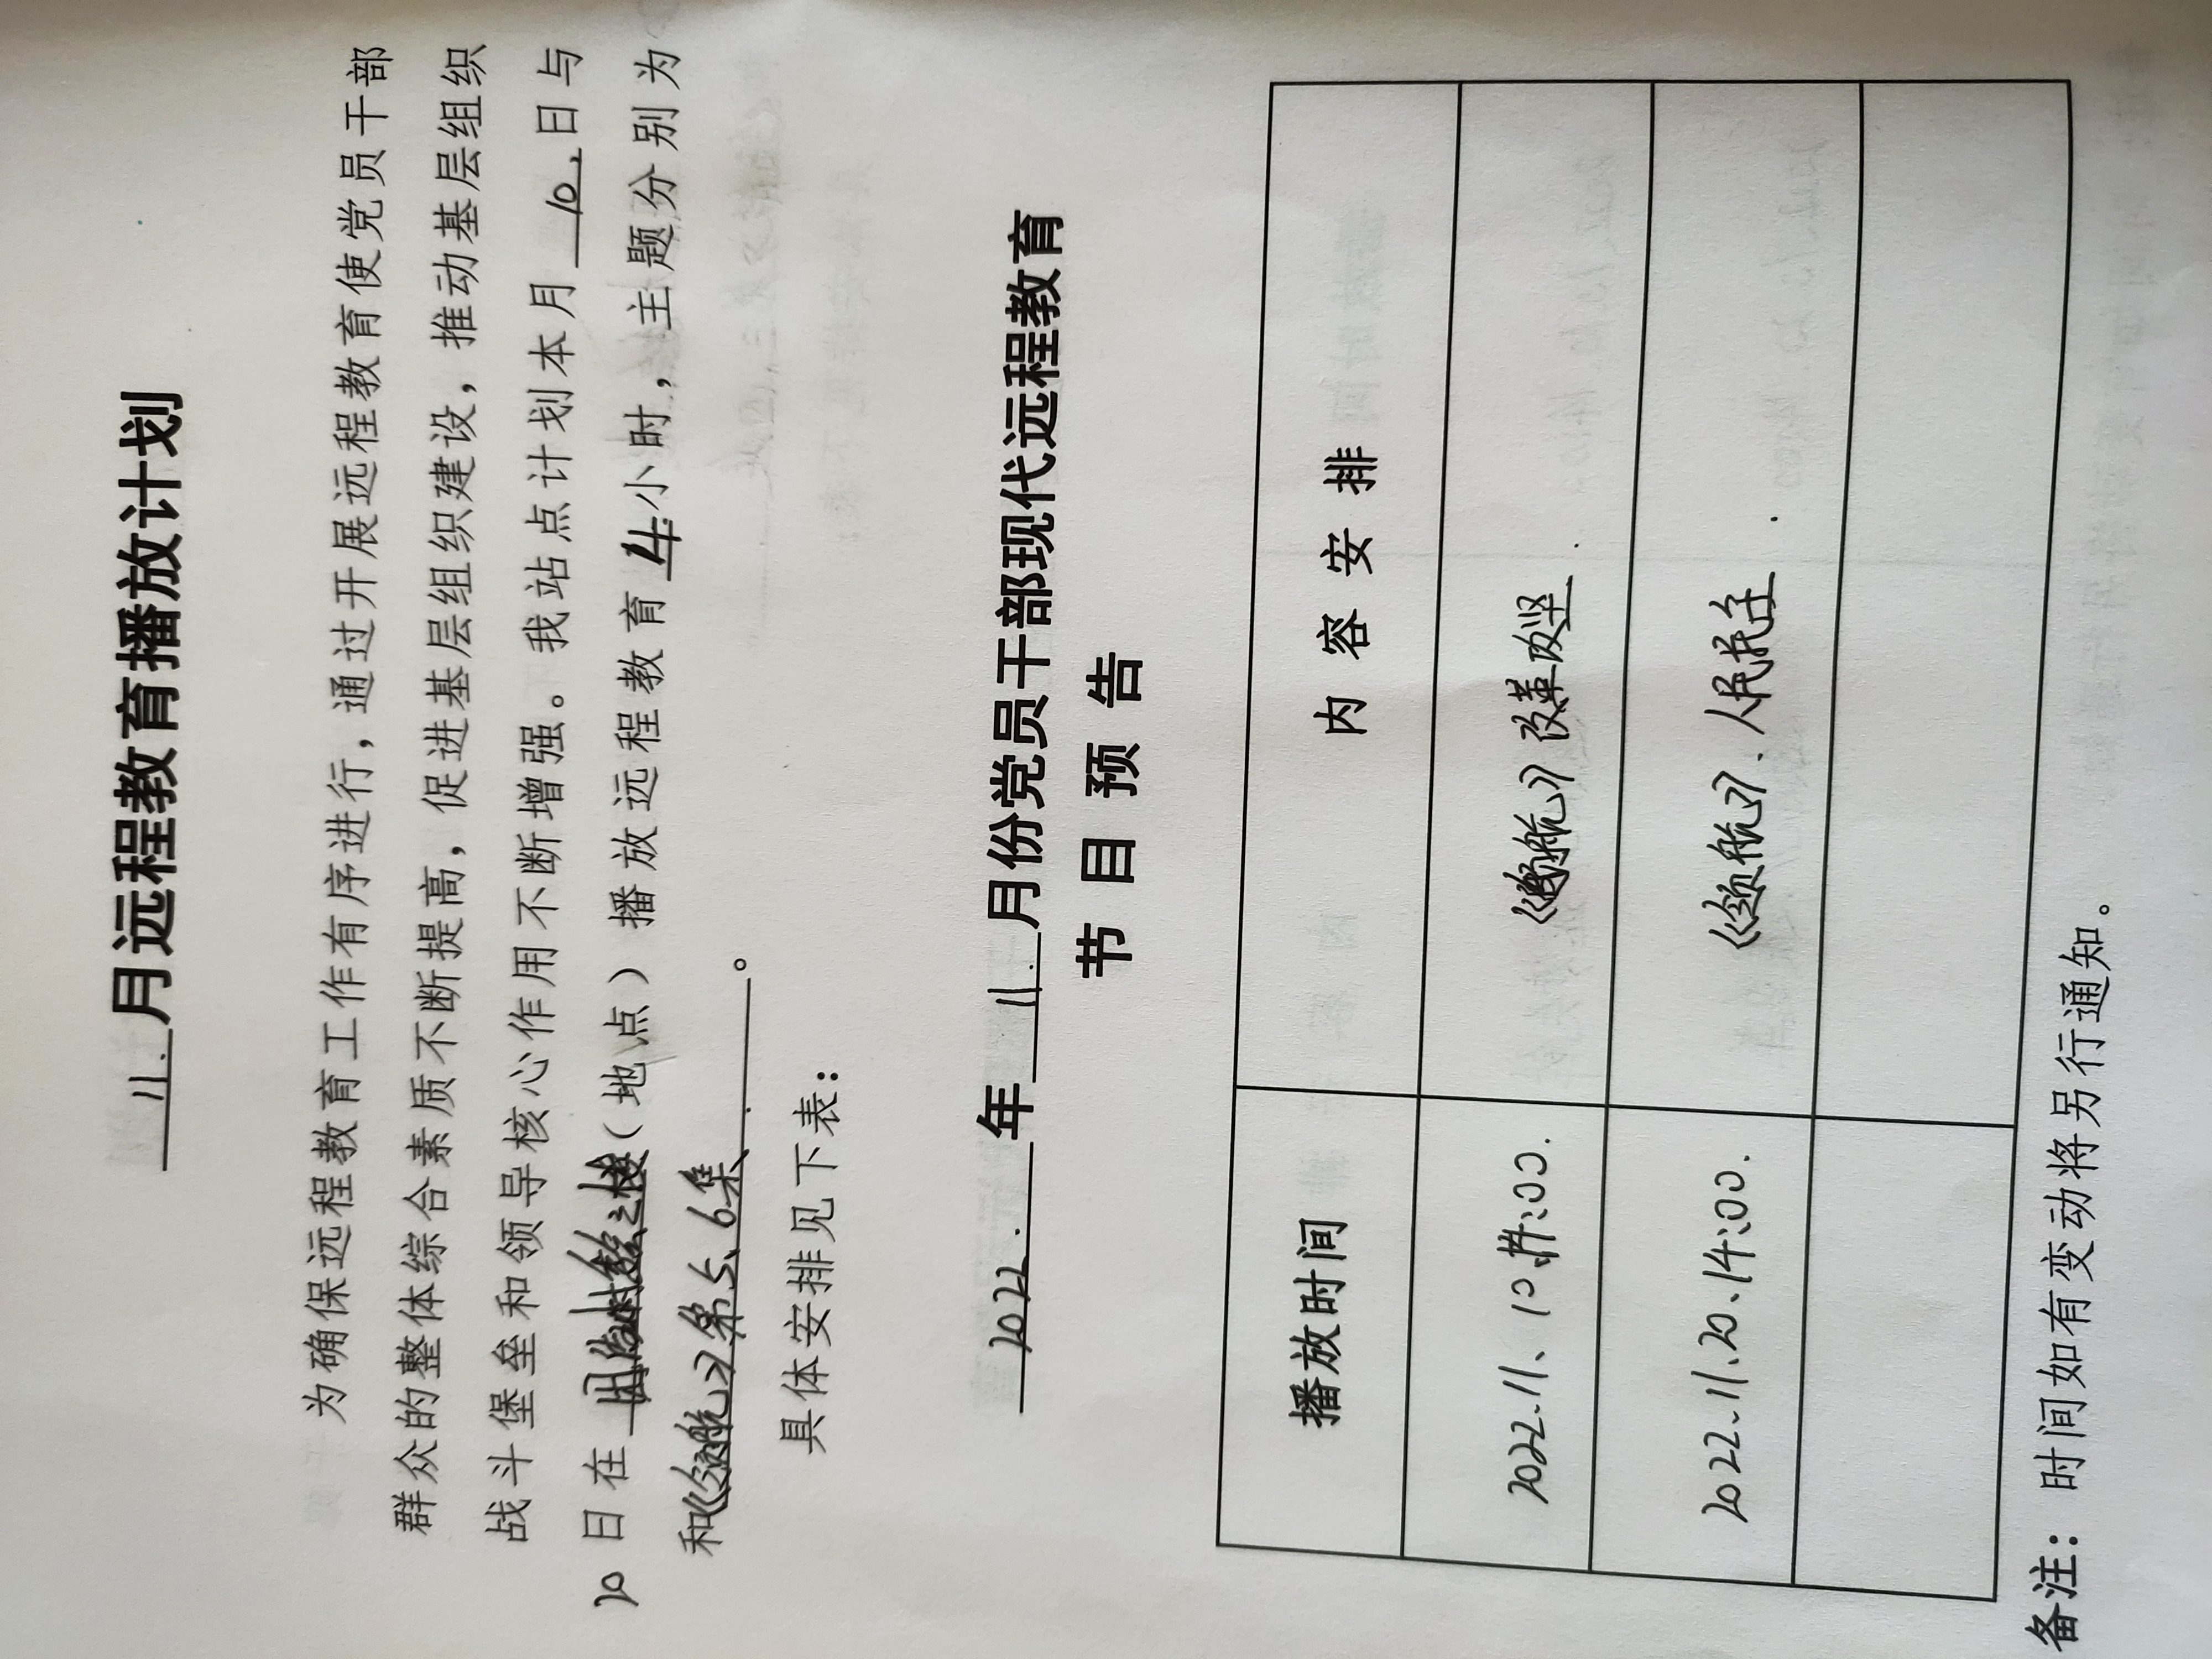 11.月远程教育播放计划
为确保远程教育工作有序进行，通过开展远程教育使党员干部
群众的整体综合素质不断提高，促进基层组织建设，推动基层组织
战斗堡垒和领导核心作用不断增强。我站点计划本月 10. 日与
20 日在（地点）播放远程教育 4 小时，主题分别为
和《领航》第5、6集。
具体安排见下表：
2022.年 11.月份党员干部现代远程教育
节目预告
播放时间 内容安排
2022.11、10、14:00. 《领航》改革攻坚.
2022.11.20.14:00. 《领航》.人民民主.
备注：时间如有变动将另行通知。